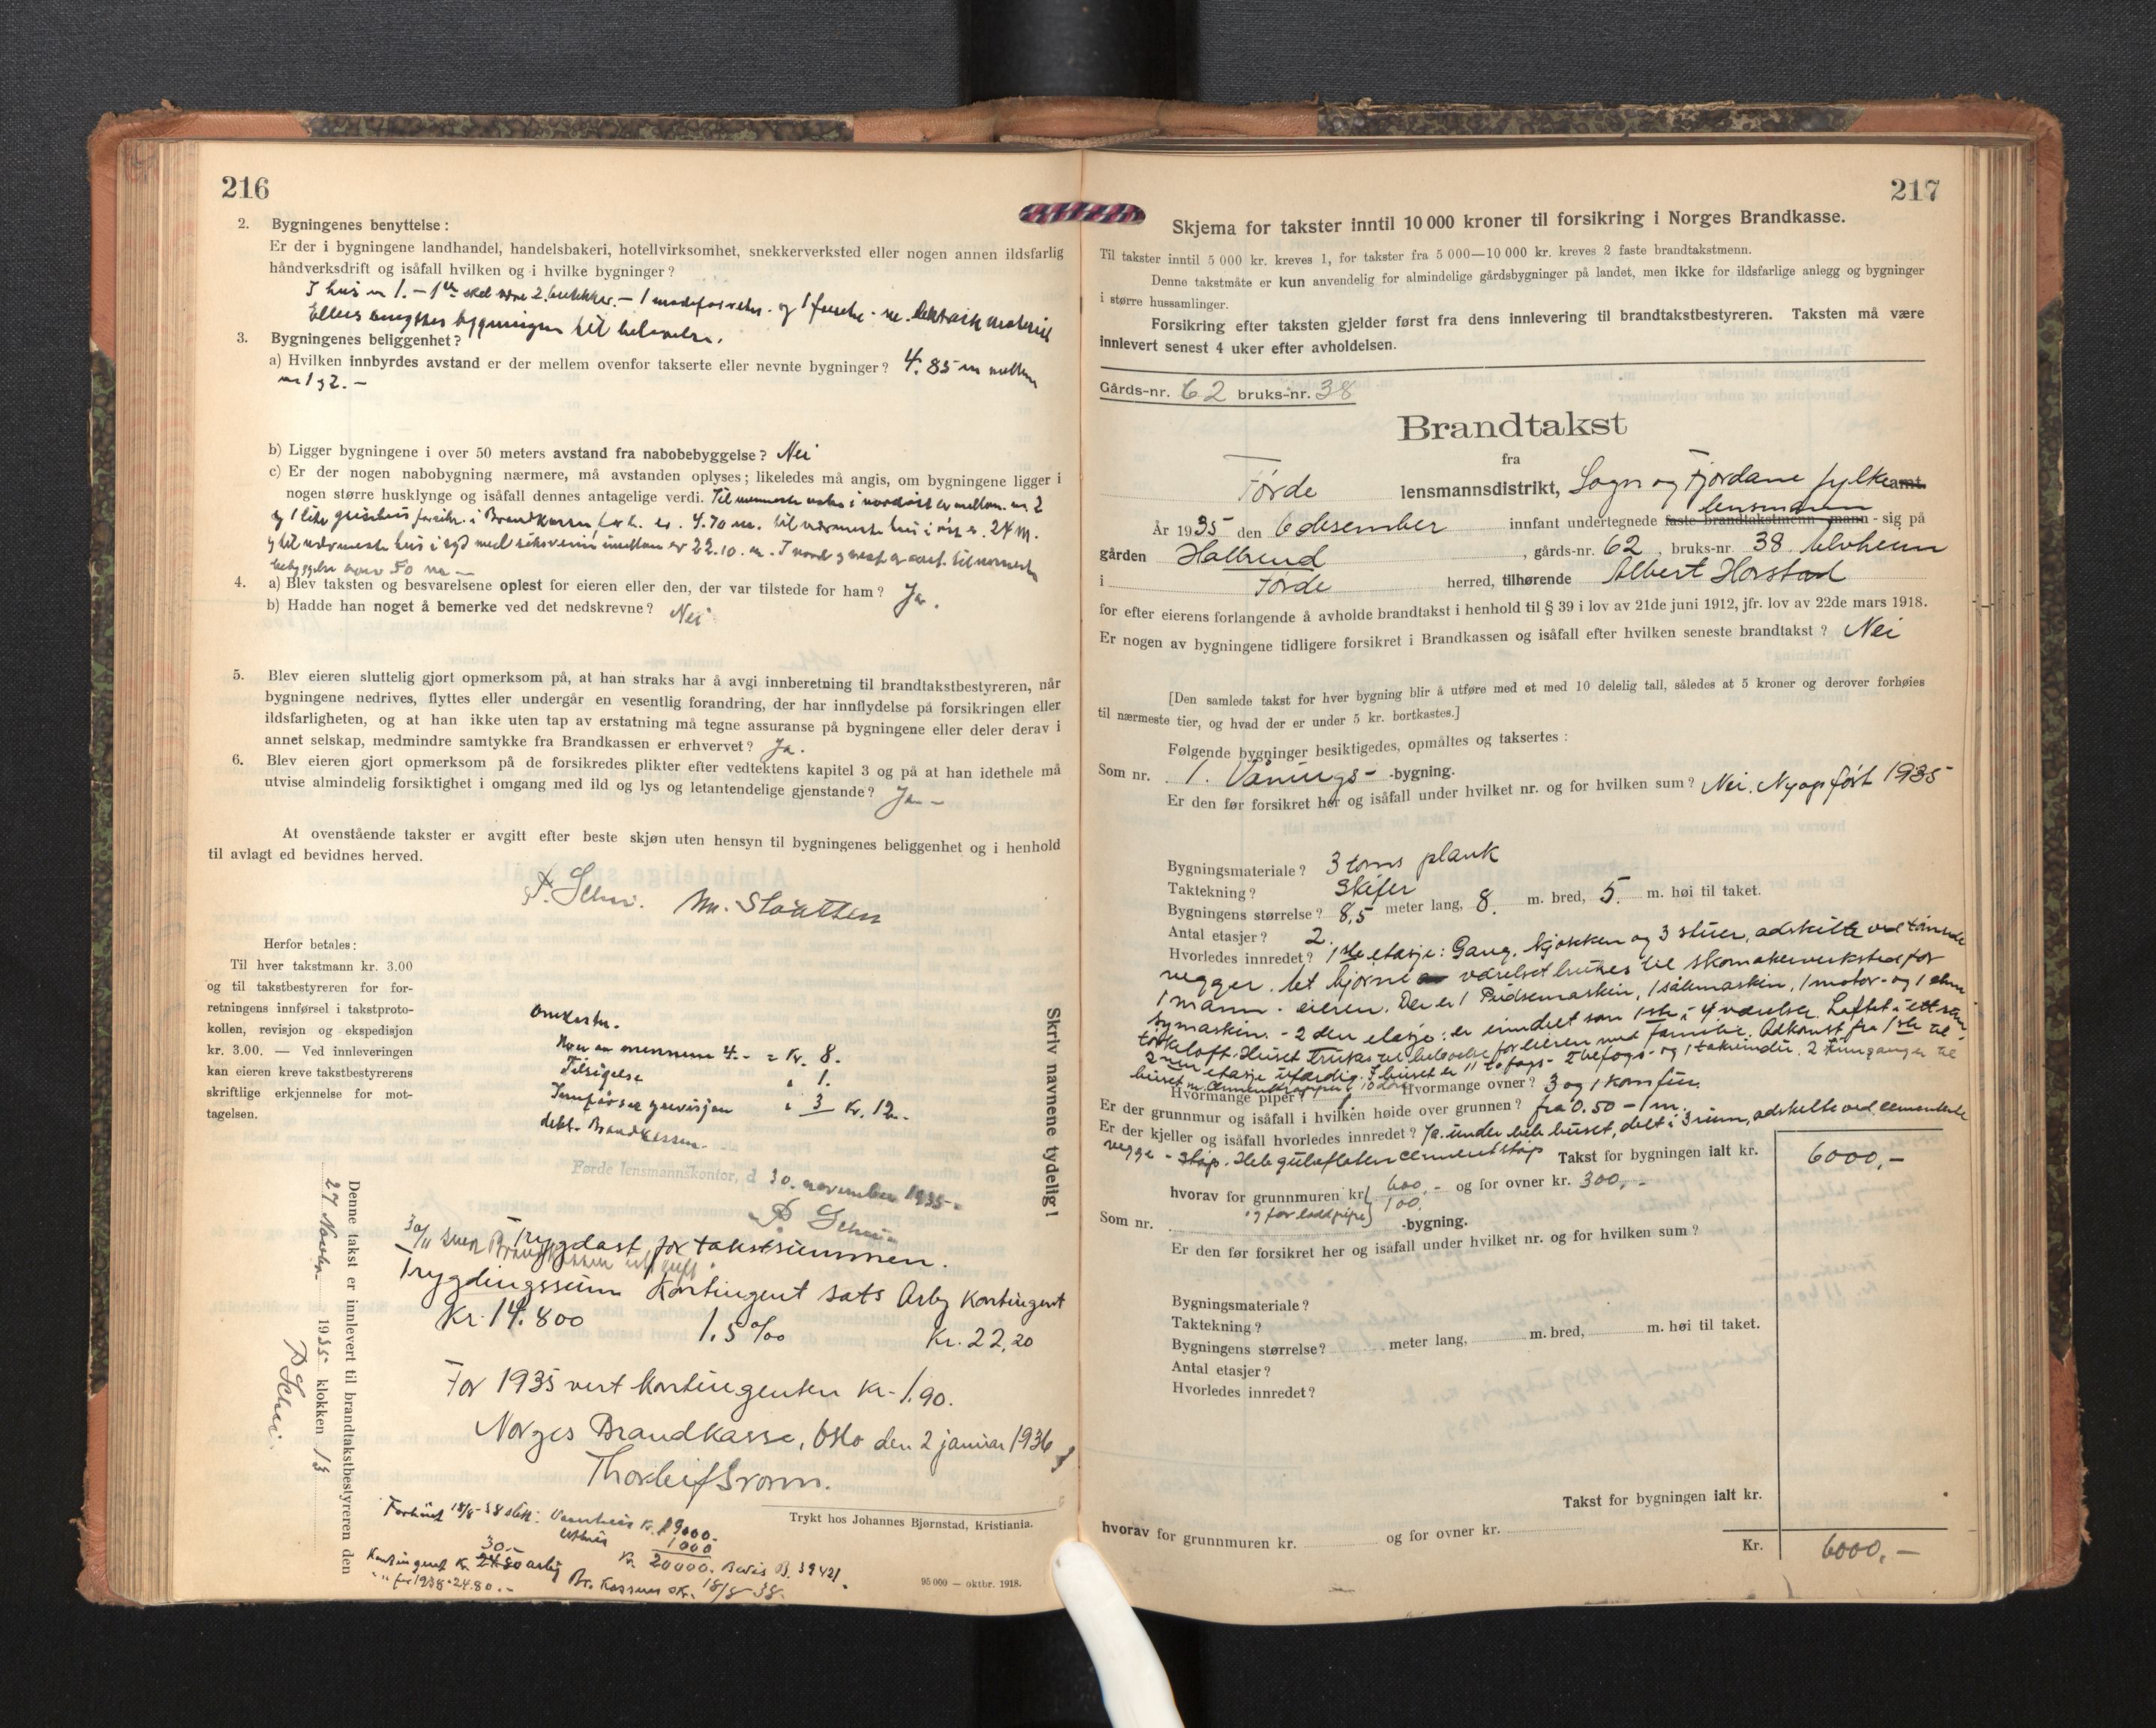 216
2. Bygningenes benyttelse :
Er der i bygningene landhandel, handelsbakeri, hotellvirksomhet, snekkerverksted eller nogen annen ildsfarlig
håndverksdrift og isåfall hvilken og i hvilke bygninger?
I hus nr 1. – 1 skal være 2. butikker. – 1 og 1
Ellers benyttes bygningen til beboelse.
3. Bygningenes beliggenhet?
a) Hvilken innbyrdes avstand er der mellem ovenfor takserte eller nevnte bygninger? 4.85 m mellem
nr 1 g 2. –
b) Ligger bygningene i over 50 meters avstand fra nabobebyggelse? Nei
c) Er der nogen nabobygning nærmere, må avstanden oplyses; likeledes må angis, om bygningene ligger i
nogen større husklynge og isåfall dennes antagelige verdi. Til nærmeste i nordöst er mellem nr. 2
g 1 lite i Brandkassen er. 4.70 m. til nærmeste hus i öst er. 24 m.
g til nærmeste hus i syd med riksveien imellem er 22.10. m. I nord g vest er avst. til nærmeste
bebyggelse over 50 m –
4. a) Blev taksten og besvarelsene oplest for eieren eller den, der var tilstede for ham? Ja.
b) Hadde han noget å bemerke ved det nedskrevne? Nei
5. Blev eieren sluttelig gjort opmerksom på, at han straks har å avgi innberetning til brandtakstbestyreren, når
bygningene nedrives, flyttes eller undergår en vesentlig forandring, der har innflydelse på forsikringen eller
ildsfarligheten, og at han ikke uten tap av erstatning må tegne assuranse på bygningene eller deler derav i
annet selskap, medmindre samtykke fra Brandkassen er erhvervet? Ja.
6. Blev eieren gjort opmerksom på de forsikredes plikter efter vedtektens kapitel 3 og på at han idethele må
utvise almindelig forsiktighet i omgang med ild og lys og letantendelige gjenstande? Ja –
At ovenstående takster er avgitt efter beste skjøn uten hensyn til bygningenes beliggenhet og i henhold
til avlagt ed bevidnes herved.
Herfor betales:
Til hver takstmann kr. 3.00
og til takstbestyreren for for-
retningens innførsel i takstproto-
kollen, revisjon og ekspedisjon
kr. 3.00. — Ved innleveringen
kan eieren kreve takstbestyrerens
skriftlige erkjennelse for mot-
tagelsen.
Omkostn.
mennene 4.- = Kr. 8.
Tilsigelse " 1.
Innförsel g revisjon " 3 Kr. 12.-
dekt. Brandkassen.
Førde lensmannskontor, d 30. november 1935.
Skriv navnene tydelig!
Denne takst er innlevert til brandtakstbestyreren den
27 Novbr 1935 klokken 13
30/11 sendt Brandkassen utskrift
Trygdast for takstsummen.
Trygdingssum Kontingent sats Årleg kontingent
Kr. 14.800 1.5 ‰ Kr. 22,20
For 1935 vert kontingenten kr. 1.90.
Norges Brandkasse, Oslo den 2 januar 1936
Trykt hos Johannes Bjørnstad, Kristiania.
Forhöiet 18/8-38 slik: Vaanhus kr. 19000.
Uthus 1000
Kr. 20000. Bevis B. 39421.
30.-
Kontingent kr. 24.80 årlig
" " for 1938 - 24.80.- Br. Kassen ok. 18/8-38.
95 000 — oktbr. 1918.
217
Skjema for takster inntil 10 000 kroner til forsikring i Norges Brandkasse.
Til takster inntil 5 000 kr. kreves 1, for takster fra 5 000—10 000 kr. kreves 2 faste brandtakstmenn.
Denne takstmåte er kun anvendelig for almindelige gårdsbygninger på landet, men ikke for ildsfarlige anlegg og bygninger
i større hussamlinger.
Forsikring efter taksten gjelder først fra dens innlevering til brandtakstbestyreren. Taksten må være
innlevert senest 4 uker efter avholdelsen.
Gårds-nr. 62 bruks-nr. 38
Brandtakst
fra
Förde lensmannsdistrikt, Sogn og Fjordane fylke amt.
lensmann
År 1935 den 6 desember innfant undertegnede faste brandtakstmenn - mann - sig på
gården Halbrend, gårds-nr. 62, bruks-nr. 38 Alvheim
i Förde herred, tilhørende Albert Horstad
for efter eierens forlangende å avholde brandtakst i henhold til § 39 i lov av 21de juni 1912, jfr. lov av 22de mars 1918.
Er nogen av bygningene tidligere forsikret i Brandkassen og isåfall efter hvilken seneste brandtakst? Nei
[Den samlede takst for hver bygning blir å utføre med et med 10 delelig tall, således at 5 kroner og derover forhøies
til nærmeste tier, og hvad der er under 5 kr. bortkastes.]
Følgende bygninger besiktigedes, opmåltes og taksertes :
Som nr. 1. Vånings- -bygning.
Er den før forsikret her og isåfall under hvilket nr. og for hvilken sum? Nei. Nyopfört 1935
Bygningsmateriale? 3 toms plank
Taktekning? Skifer
Bygningens størrelse? 8,5 meter lang, 8. m. bred, 5. m. høi til taket.
Antal etasjer? 2.
Hvorledes innredet? 1ste etasje: Gang, kjökken og 3 stuer, adskilte ved tömrede
vegger. Et hjörne værelset brukes til skomakerverksted for
1 mann - eieren. Der er 1 Pudsemaskin, 1 sålemaskin, 1 motor- og 1
symaskin. - 2 den etasje: er inndelt som 1ste i 4 værelser. Loftet i ett
törkeloft. Huset brukes til beboelse for eieren med familie. Adkomst fra 1ste til
2nen etasje uferdig. I huset er 11 tofags- 2 befags- og 1 takvindu. 2 innganger til
huset m. cementtrapper, 10 dörer
Hvormange piper? 1 Hvormange ovner? 3 og 1 komfur.
Er der grunnmur og isåfall i hvilken høide over grunnen? fra 0.50 - 1 m.
Er der kjeller og isåfall hvorledes innredet? Ja. under hele huset, delt i 3 rum, adskilte ved cementerte
vegge - støp. Hele gulvflaten cementstöp Takst for bygningen ialt kr. 6000,-
hvorav for grunnmuren kr. 600,- og for ovner kr. 300,-
og for loddpipe 100.
Som nr. -bygning.
Er den før forsikret her og isåfall under hvilket nr. og for hvilken sum?
Bygningsmateriale?
Taktekning?
Bygningens størrelse? meter lang, m. bred, m. høi til taket.
Antal etasjer?
Hvorledes innredet?
Takst for bygningen ialt kr.
hvorav for grunnmuren kr. og for ovner kr.
Kr. 6000,-